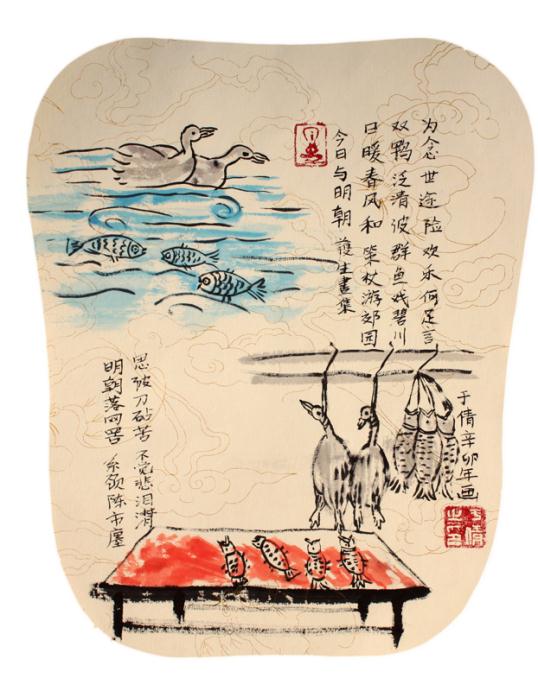 今日与明朝 護生畫集
日暖春风和 策杖游郊园
双鸭泛清波 群鱼戏碧川
为念世途险 欢乐何足言
明朝落网罟 系颈陈市廛
思彼刀砧苦 不觉悲泪潸
于倩辛卯年画
于倩之印